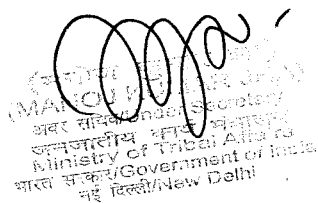 अवर सचिव/Under Secretary
जनजातीय कार्य मंत्रालय
Ministry of Tribal Affairs
भारत सरकार/Government of India
नई दिल्ली/New Delhi